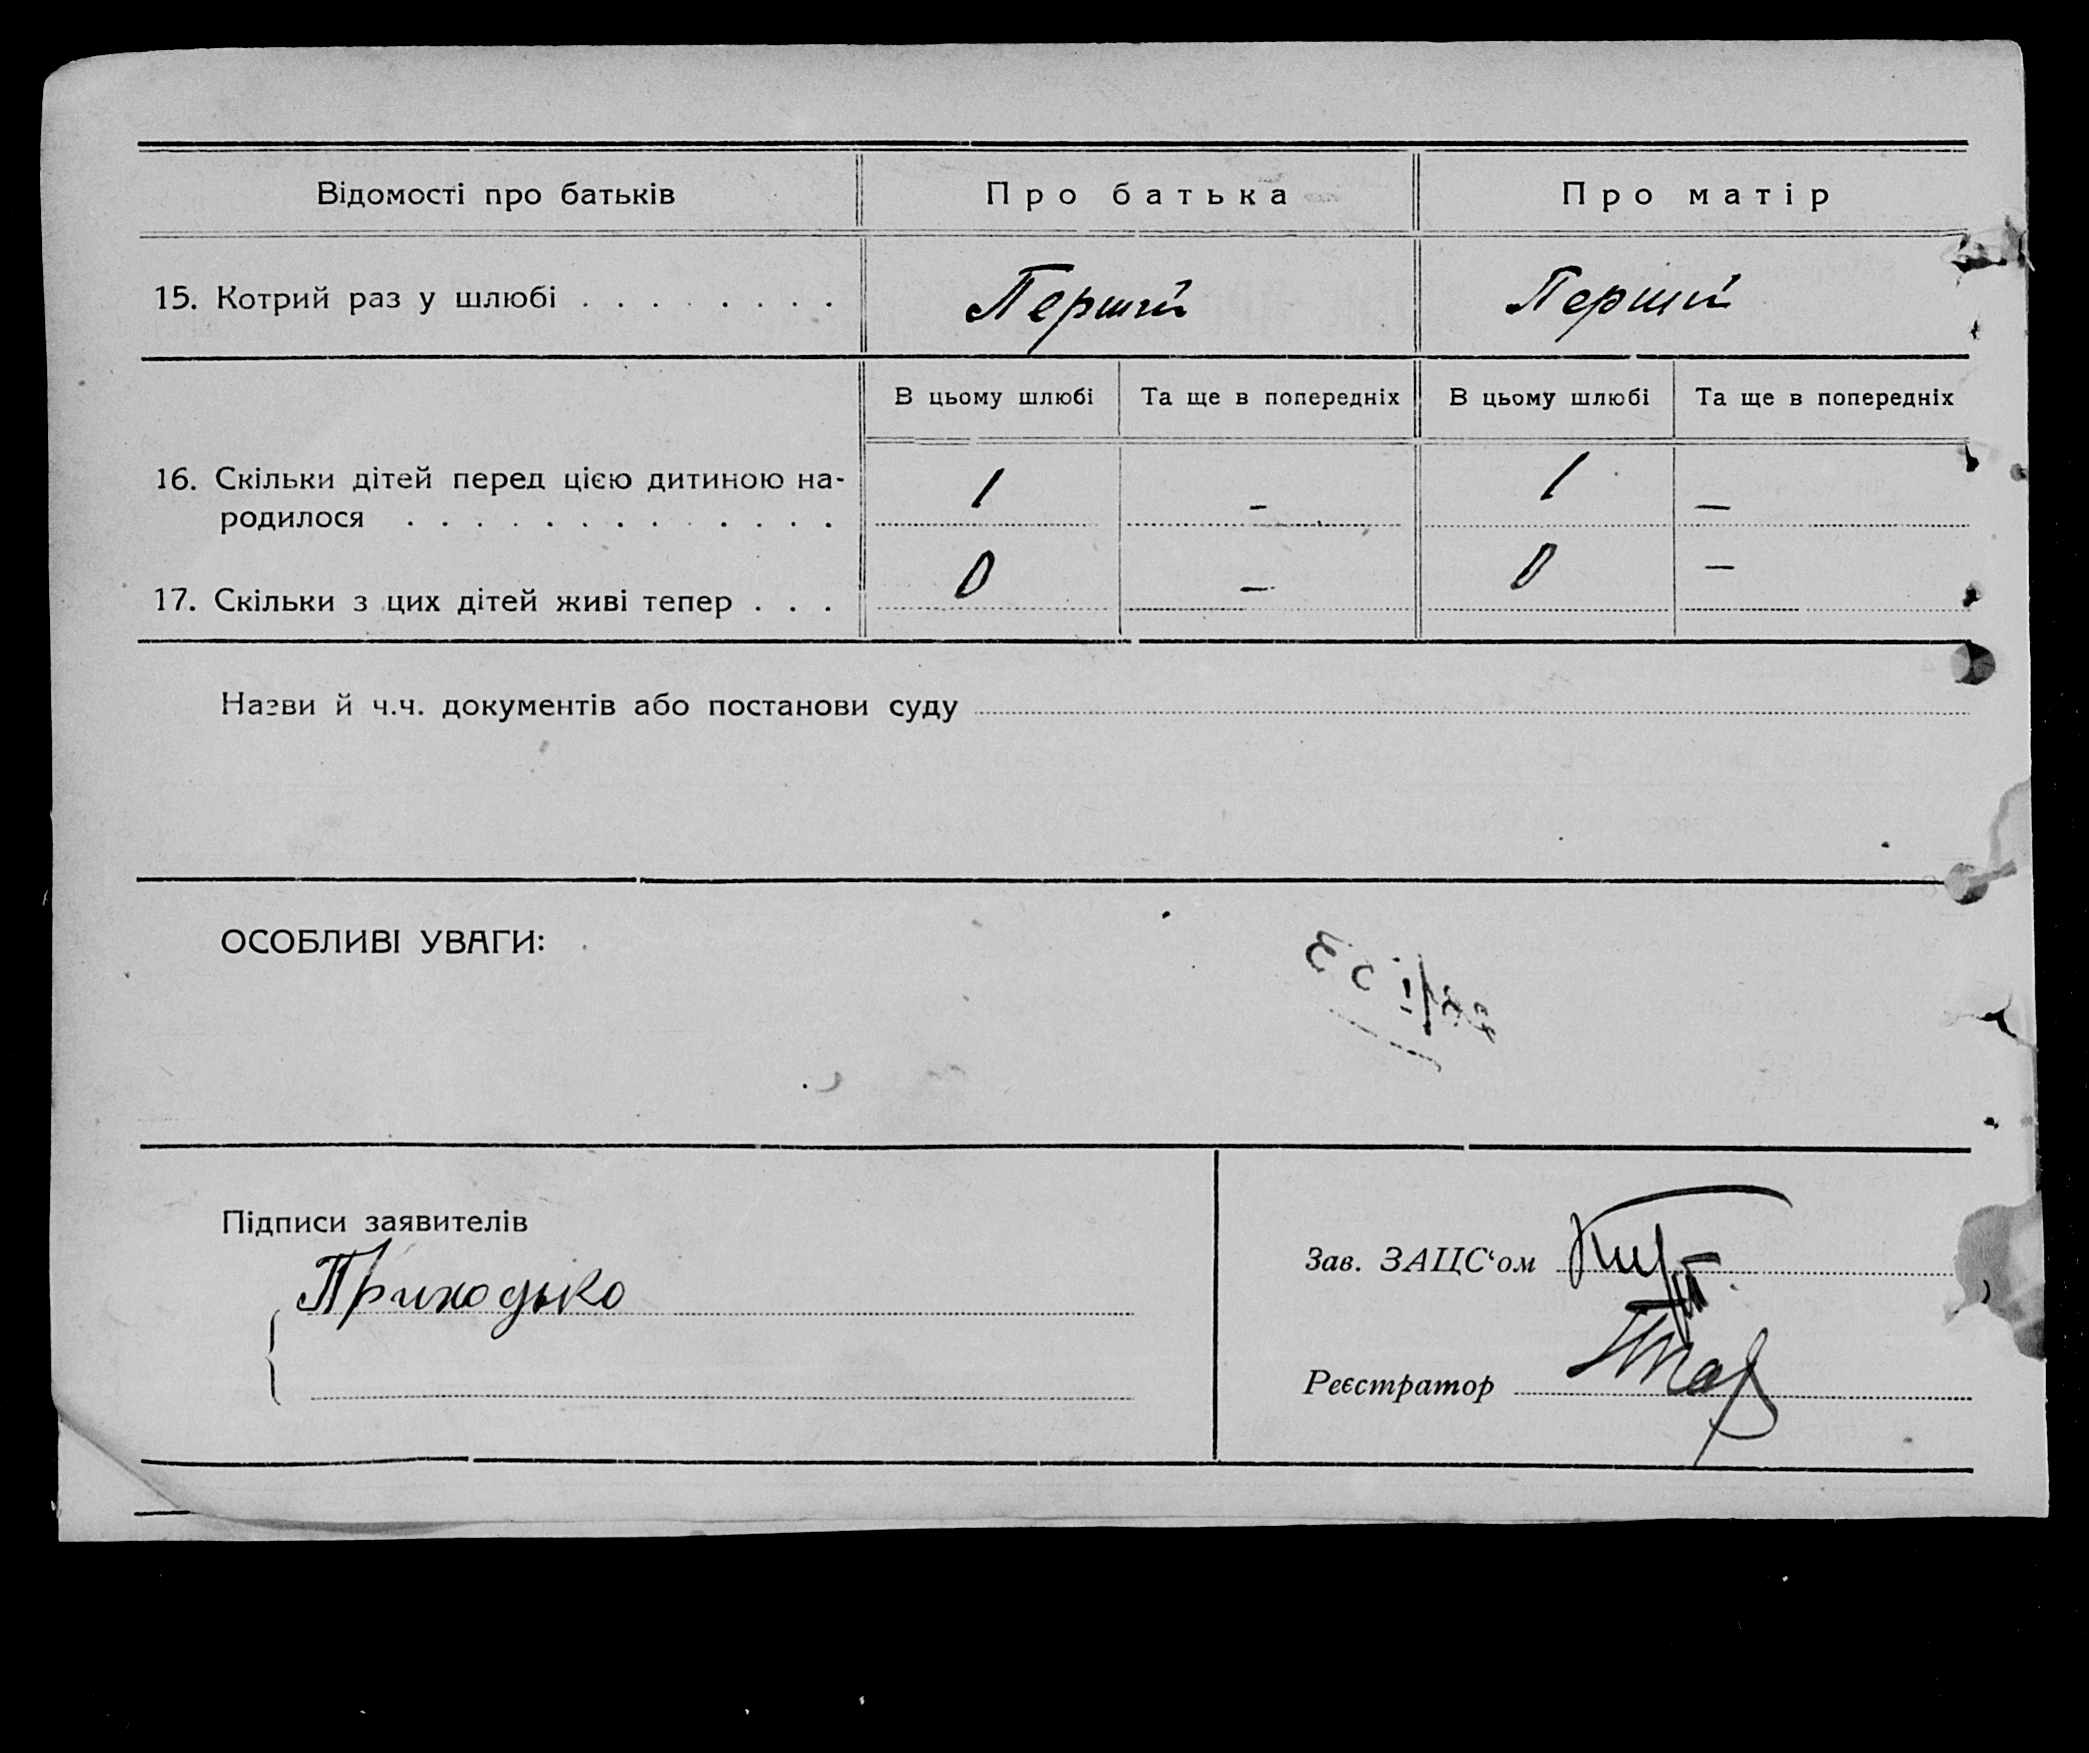 Відомості про батьків
Про батька
Про матір
15. Котрий раз у шлюбі . . . . . . . .
Перший
Перший
В цьому шлюбі
Та ще в попередніх
В цьому шлюбі
Та ще в попередніх
16. Скільки дітей перед цією дитиною на-
родилося . . . . . . . . . . . . .
1
–
1
–
17. Скільки з цих дітей живі тепер . . .
0
–
0
–
Назви й ч.ч. документів або постанови суду
ОСОБЛИВІ УВАГИ:
Підписи заявителів
Приходько
Зав. ЗАЦС‘ом
Реєстратор